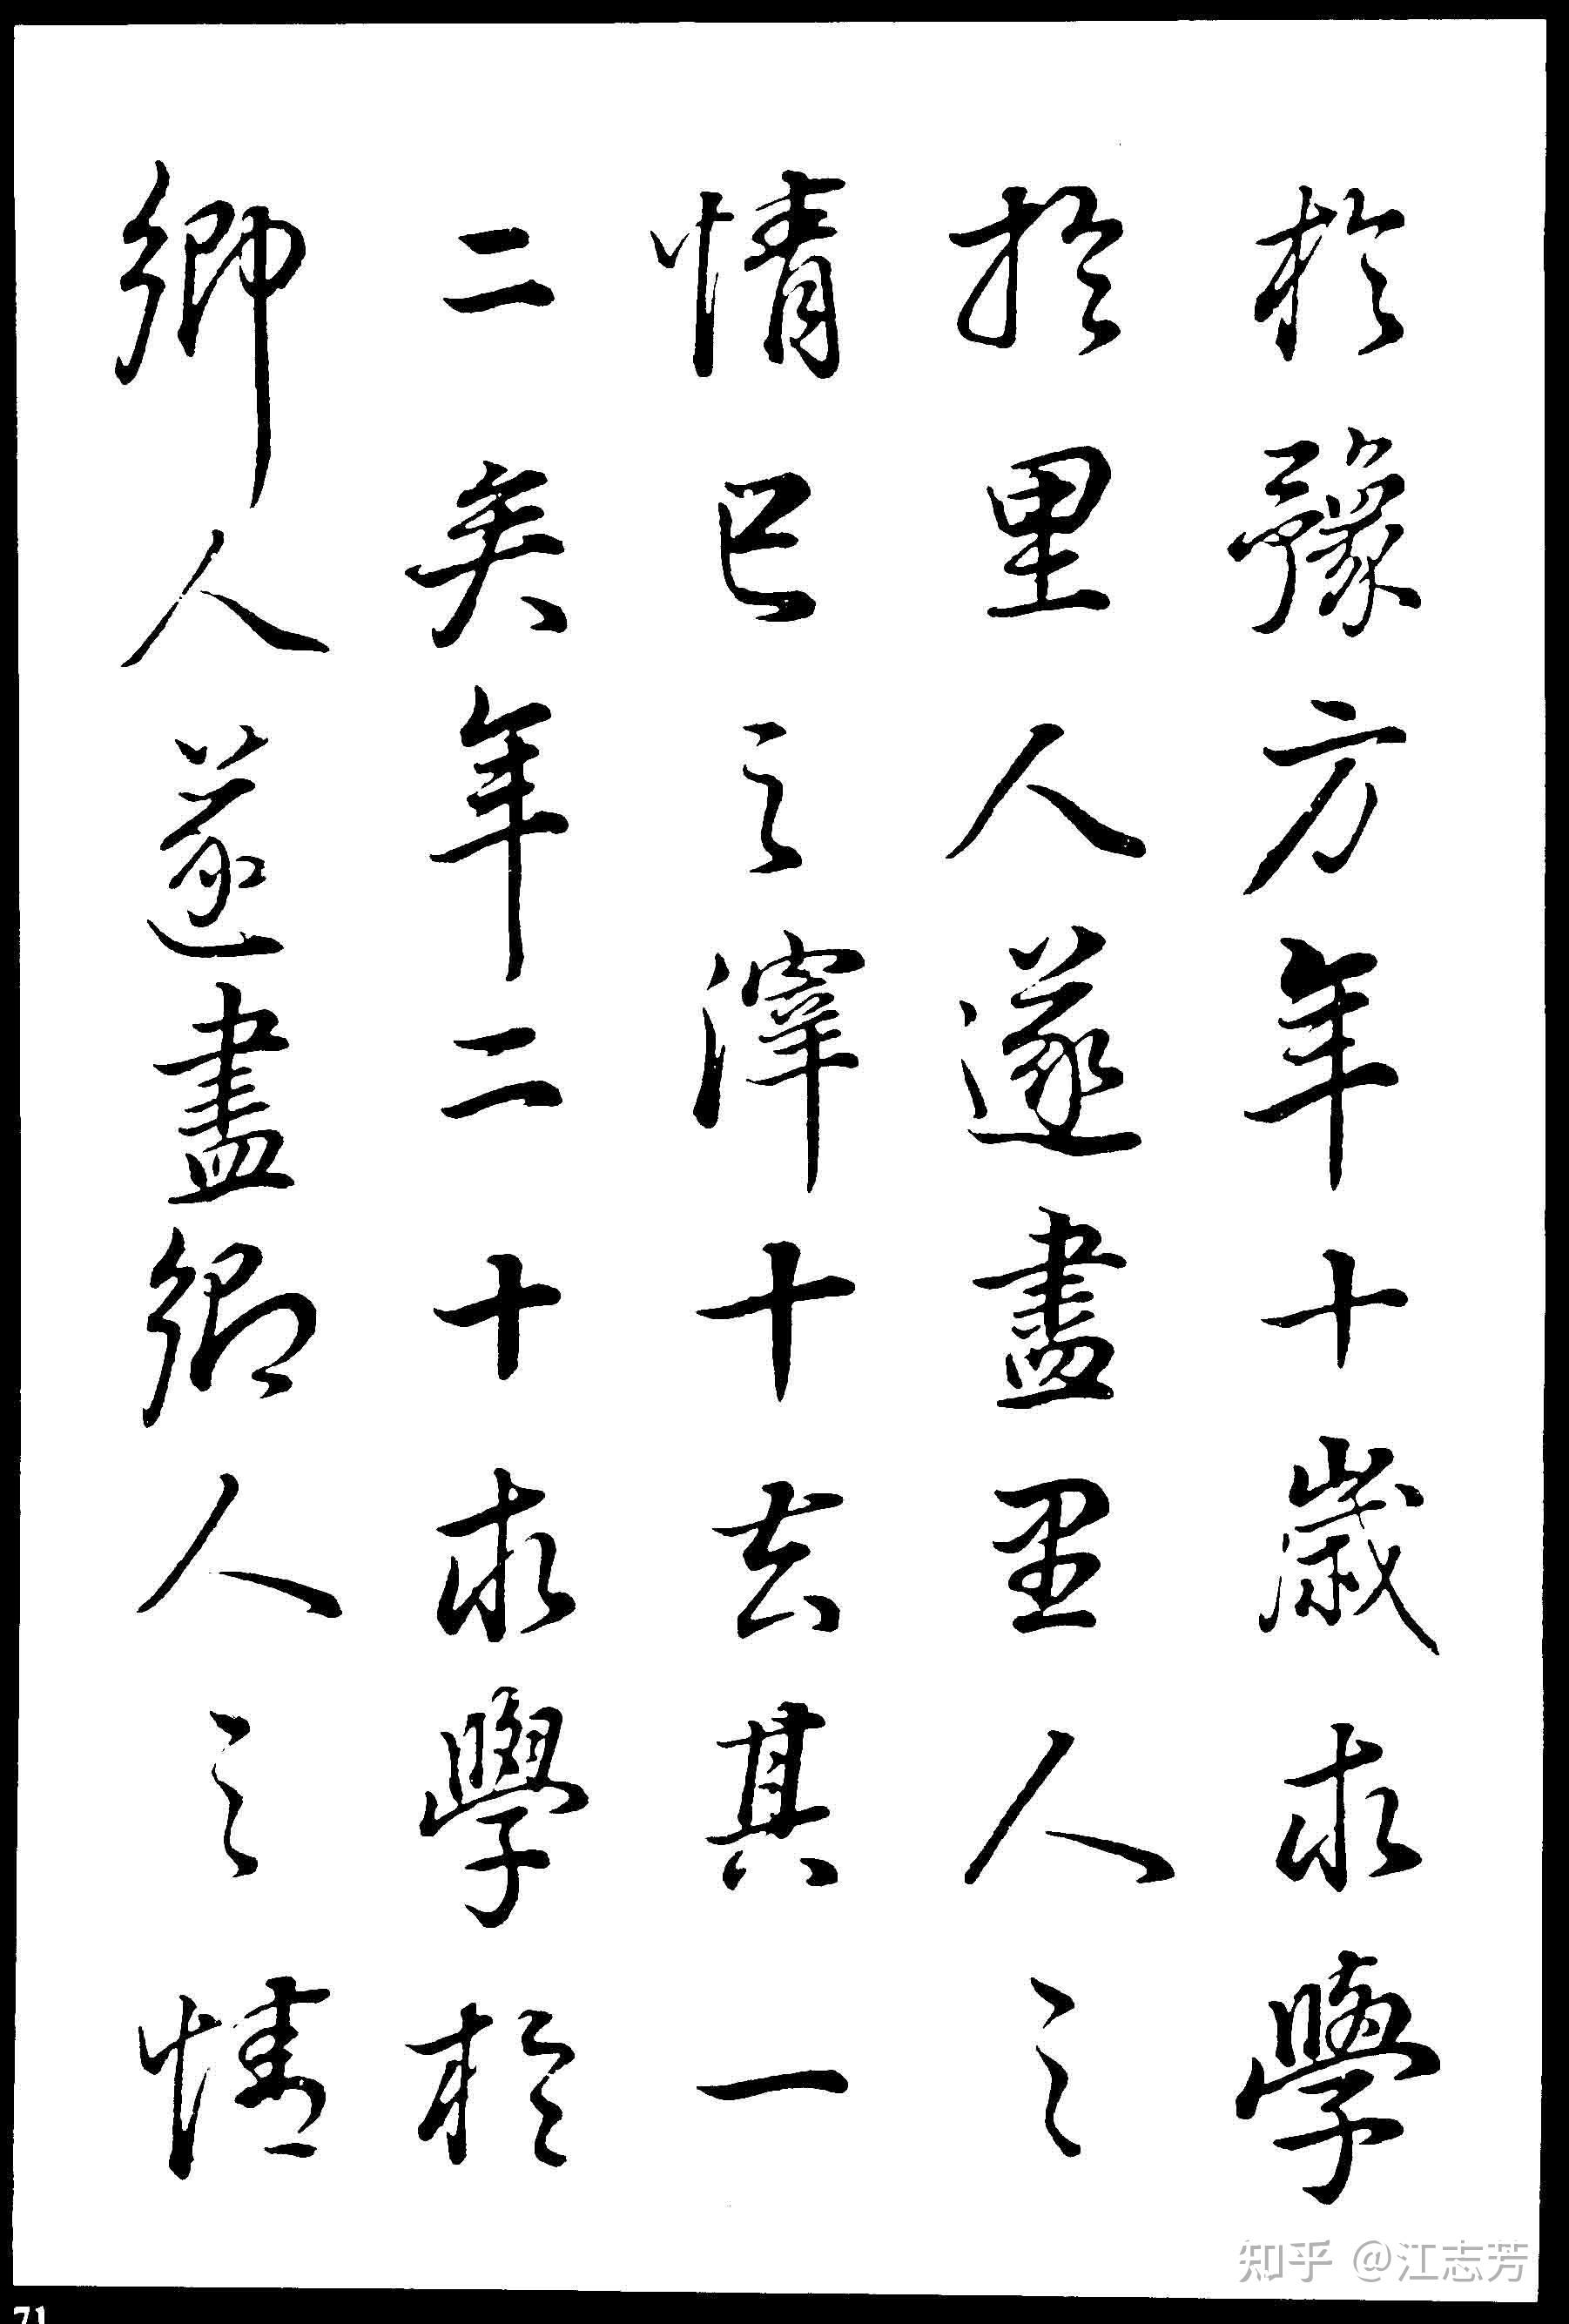 於豫方年十歲求學
於里人遂盡里人之
情己之滓十去其一
二矣年二十求學於
鄉人遂盡鄉人之情
知乎 @江志芳
71